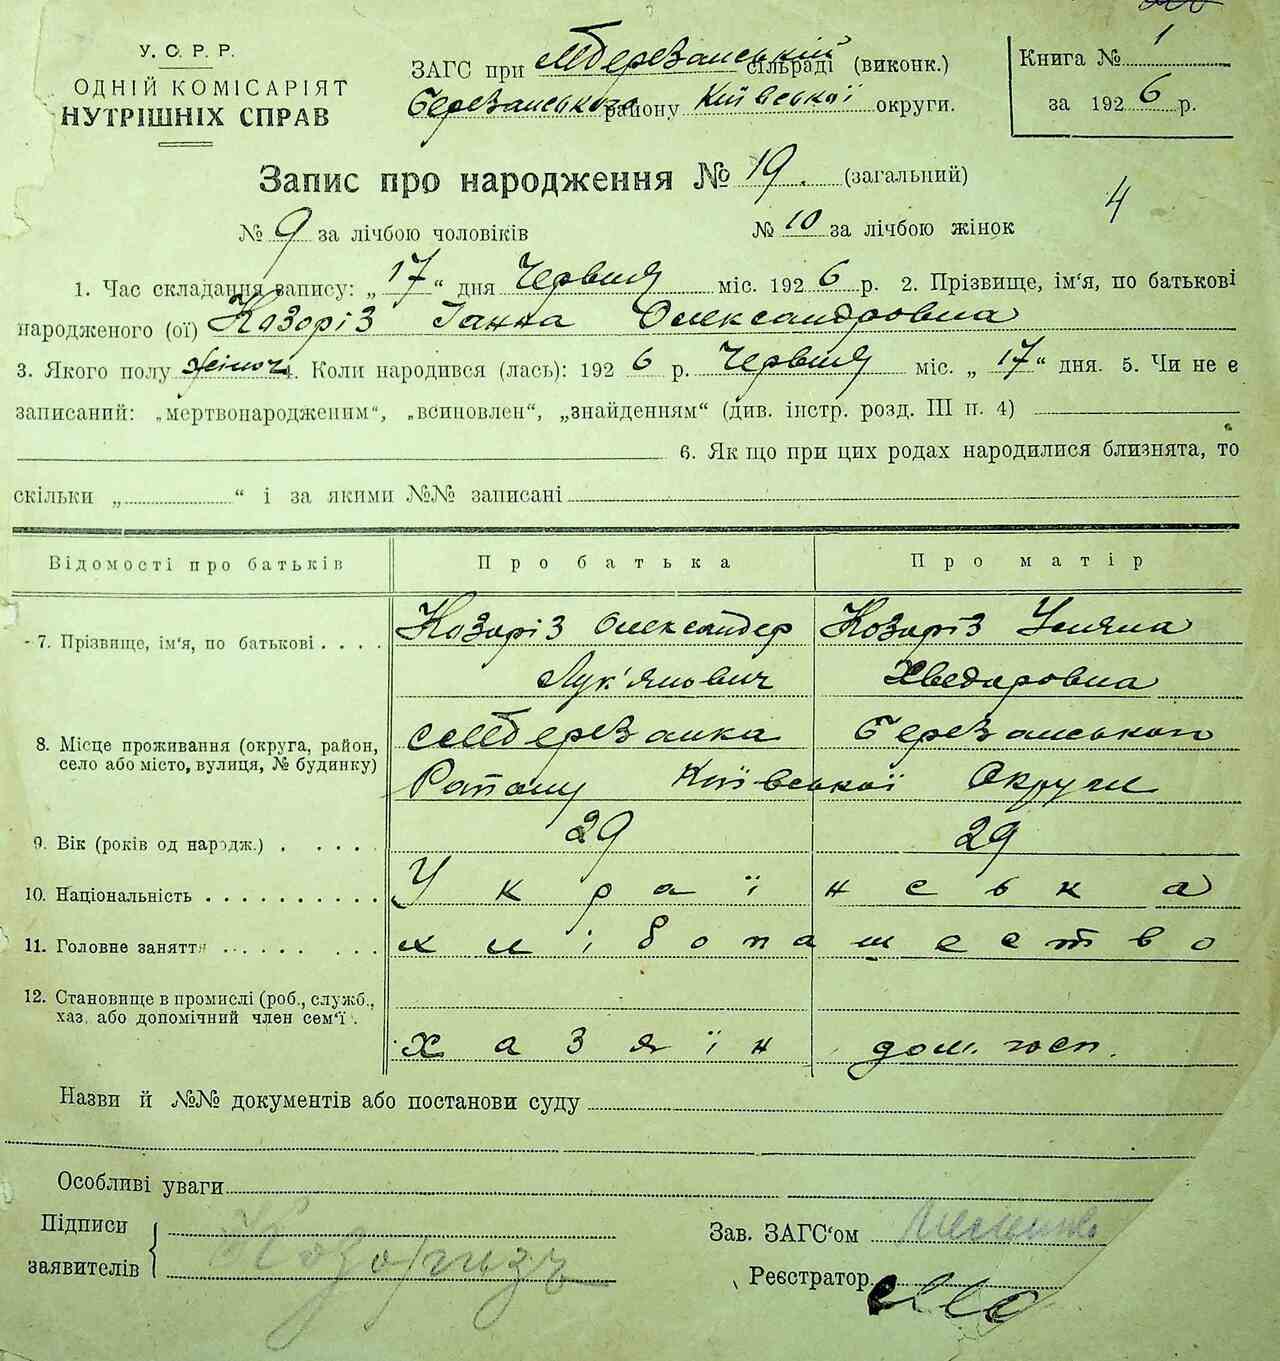 У. С. Р. Р.
ОДНІЙ КОМІСАРІЯТ
НУТРІШНІХ СПРАВ
ЗАГС при МБерезанській сільраді (виконк.)
Березанського району Київської округи.
Книга № 1
за 1926 р.
Запис про народження № 19. (загальний)
4
№ 9 за лічбою чоловіків № 10 за лічбою жінок
1. Час складання запису: „17“ дня Червня міс. 1926 р. 2. Прізвище, ім‘я, по батькові
народженого (ої) Козоріз Ганна Олександровна
3. Якого полу жіноч 4. Коли народився (лась): 1926 р. Червня міс. „17“ дня. 5. Чи не є
записаний: „мертвонародженим“, „всиновлен“, „знайденням“ (див. інстр. розд. III п. 4)
6. Як що при цих родах народилися близнята, то
скільки „ “ і за якими №№ записані
Відомості про батьків Про батька Про матір
7. Прізвище, ім‘я, по батькові . . . . Козоріз Олександер Козоріз Уляна
Лук'янович Хведоровна
8. Місце проживання (округа, район, село або місто, вулиця, № будинку) Березанка Березанського
Району Київської Округи
9. Вік (років од народж.) . . . . . 29 29
10. Національність . . . . . . . . . . Українська
11. Головне заняття . . . . . . . . . хлібопашество
12. Становище в промислі (роб., служб.,
хаз. або допомічний член сем‘ї . хазяїн дом. госп.
Назви й №№ документів або постанови суду
Особливі уваги
Підписи
заявителів Козорізъ
Зав. ЗАГС‘ом
Реєстратор